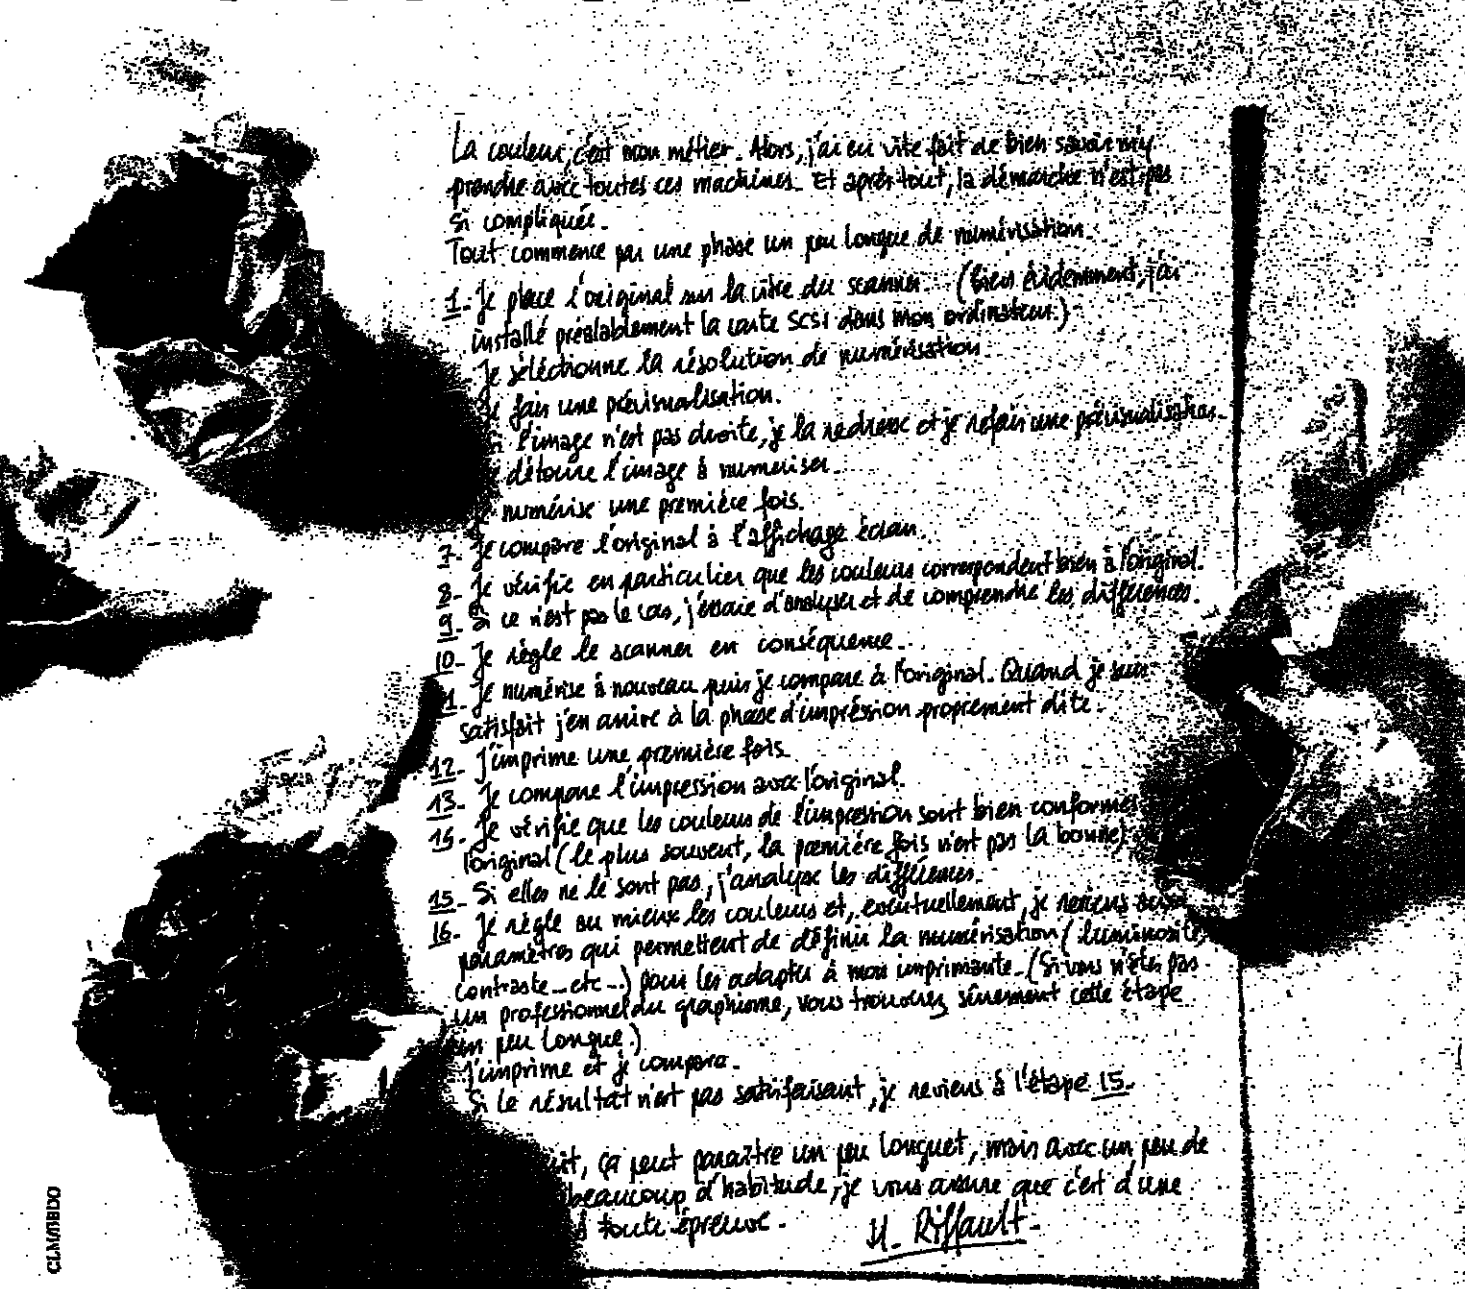 La couleur, c'est mon métier. Alors, j'ai eu vite fait de bien savoir m'y
prendre avec toutes ces machines. Et après tout, la démarche n'est pas
si compliquée.
Tout commence par une phase un peu longue de numérisation.
1. Je place l'original sur la vitre du scanner. (bien évidemment, j'ai
installé préalablement la carte SCSI dans mon ordinateur.)
Je sélectionne la résolution de numérisation.
Je fais une prévisualisation.
Si l'image n'est pas droite, je la redresse et je refais une prévisualisation.
détoure l'image à numériser.
numérise une première fois.
7. Je compare l'original à l'affichage écran.
8. Je vérifie en particulier que les couleurs correspondent bien à l'original.
9. Si ce n'est pas le cas, j'essaie d'analyser et de comprendre les différences.
10. Je règle le scanner en conséquence.
11. Je numérise à nouveau puis je compare à l'original. Quand je suis
satisfait j'en arrive à la phase d'impression proprement dite.
12. J'imprime une première fois.
13. Je compare l'impression avec l'original.
14. Je vérifie que les couleurs de l'impression sont bien conformes
l'original (le plus souvent, la première fois n'est pas la bonne)
15. Si elles ne le sont pas, j'analyse les différences.
16. Je règle au mieux les couleurs et, éventuellement, je reviens aux
paramètres qui permettent de définir la numérisation (luminosité,
contraste... etc...) pour les adapter à mon imprimante. (Si vous n'êtes pas
un professionnel du graphisme, vous trouverez sûrement cette étape
un peu longue.)
J'imprime et je compare.
Si le résultat n'est pas satisfaisant, je reviens à l'étape 15.
ça peut paraître un peu longuet, mais avec un peu de
beaucoup d'habitude, je vous assure que c'est d'une
toute épreuve.
H. Riffault.
CLM/BBDO